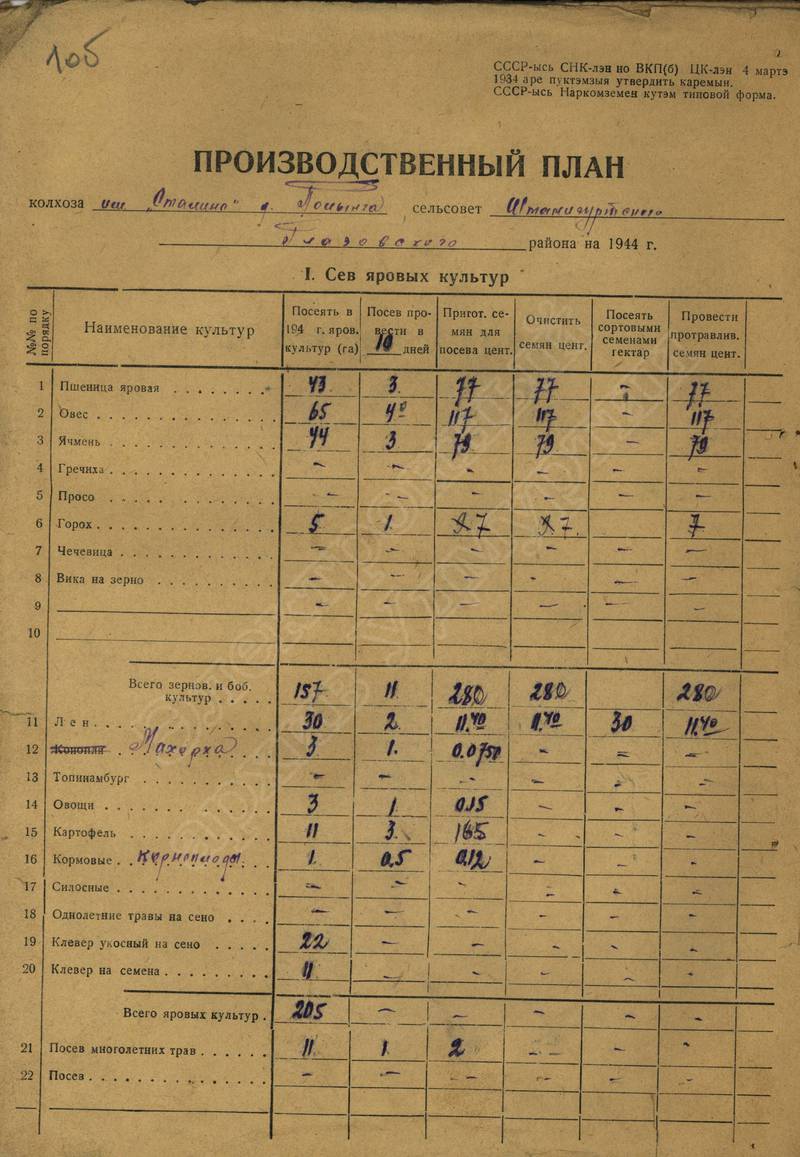 106
СССР-ысь СНК-лэн но ВКП(б) ЦК-лэн 4 мартэ
1934 аре пуктэмзыя утвердить каремын.
СССР-ысь Наркомземен кутэм типовой форма.
ПРОИЗВОДСТВЕННЫЙ ПЛАН
колхоза им „Сталина" д. сельсовет Штанигуртского
Глазовского района на 1944 г.
I. Сев яровых культур
№№ по порядку Наименование культур Посеять в 194 г. яров. культур (га) Посев провести в 10 дней Пригот. семян для посева цент. Очистить семян цент. Посеять сортовыми семенами гектар Провести протравлив. семян цент.
1 Пшеница яровая 43 3 77 77 - 77
2 Овес 65 4 117 117 - 117
3 Ячмень 44 3 79 79 - 79
4 Гречиха - - - - - -
5 Просо - - - - - -
6 Горох 5 1. 7 7. 7
7 Чечевица - - - - - -
8 Вика на зерно - - - - - -
9 - - - - - -
10
Всего зернов. и боб. культур 157 11 280 280 280
11 Лен 30 2 11.40 11.40 30 11.40
12 Конопля Махорка 3 1. 0.0750 - - -
13 Топинамбург - - - - - -
14 Овощи 3 1 0.15 - - -
15 Картофель 11 3 165 - - -
16 Кормовые Корнеплоды 1. 0.5 0.12 - - -
17 Силосные - - - - - -
18 Однолетние травы на сено - - - - - -
19 Клевер укосный на сено 22 - - - - -
20 Клевер на семена 11 - - - - -
Всего яровых культур 205 - - - - -
21 Посев многолетних трав 11 1 2 - - -
22 Посев - - - - - -